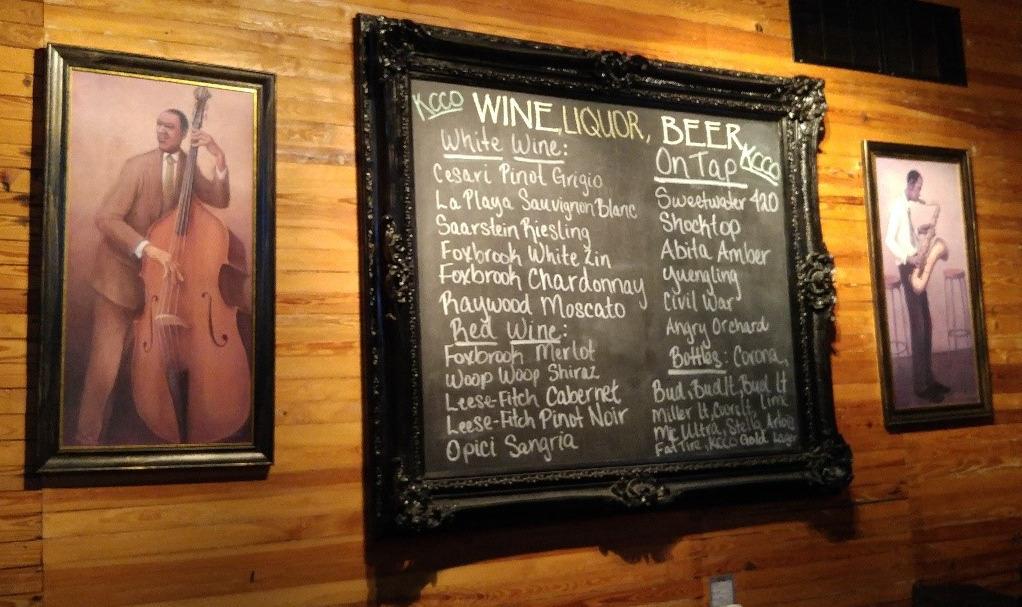 KCCO WINE, LIQUOR, BEER KCCO
White Wine:
Cesari Pinot Grigio
La Playa Sauvignon Blanc
Saarstein Riesling
Foxbrook White Zin
Foxbrook Chardonnay
Raywood Moscato
Red Wine:
Foxbrook Merlot
Woop Woop Shiraz
Leese-Fitch Cabernet
Leese-Fitch Pinot Noir
Opici Sangria
On Tap
Sweetwater 420
Shocktop
Abita Amber
Yuengling
Civil War
Angry Orchard
Bottles: Corona,
Bud, Bud Lt, Bud Lt Lime
Miller Lt, Coors Lt,
Mic Ultra, Stella Artois
Fat Tire, KCCO Gold Lager